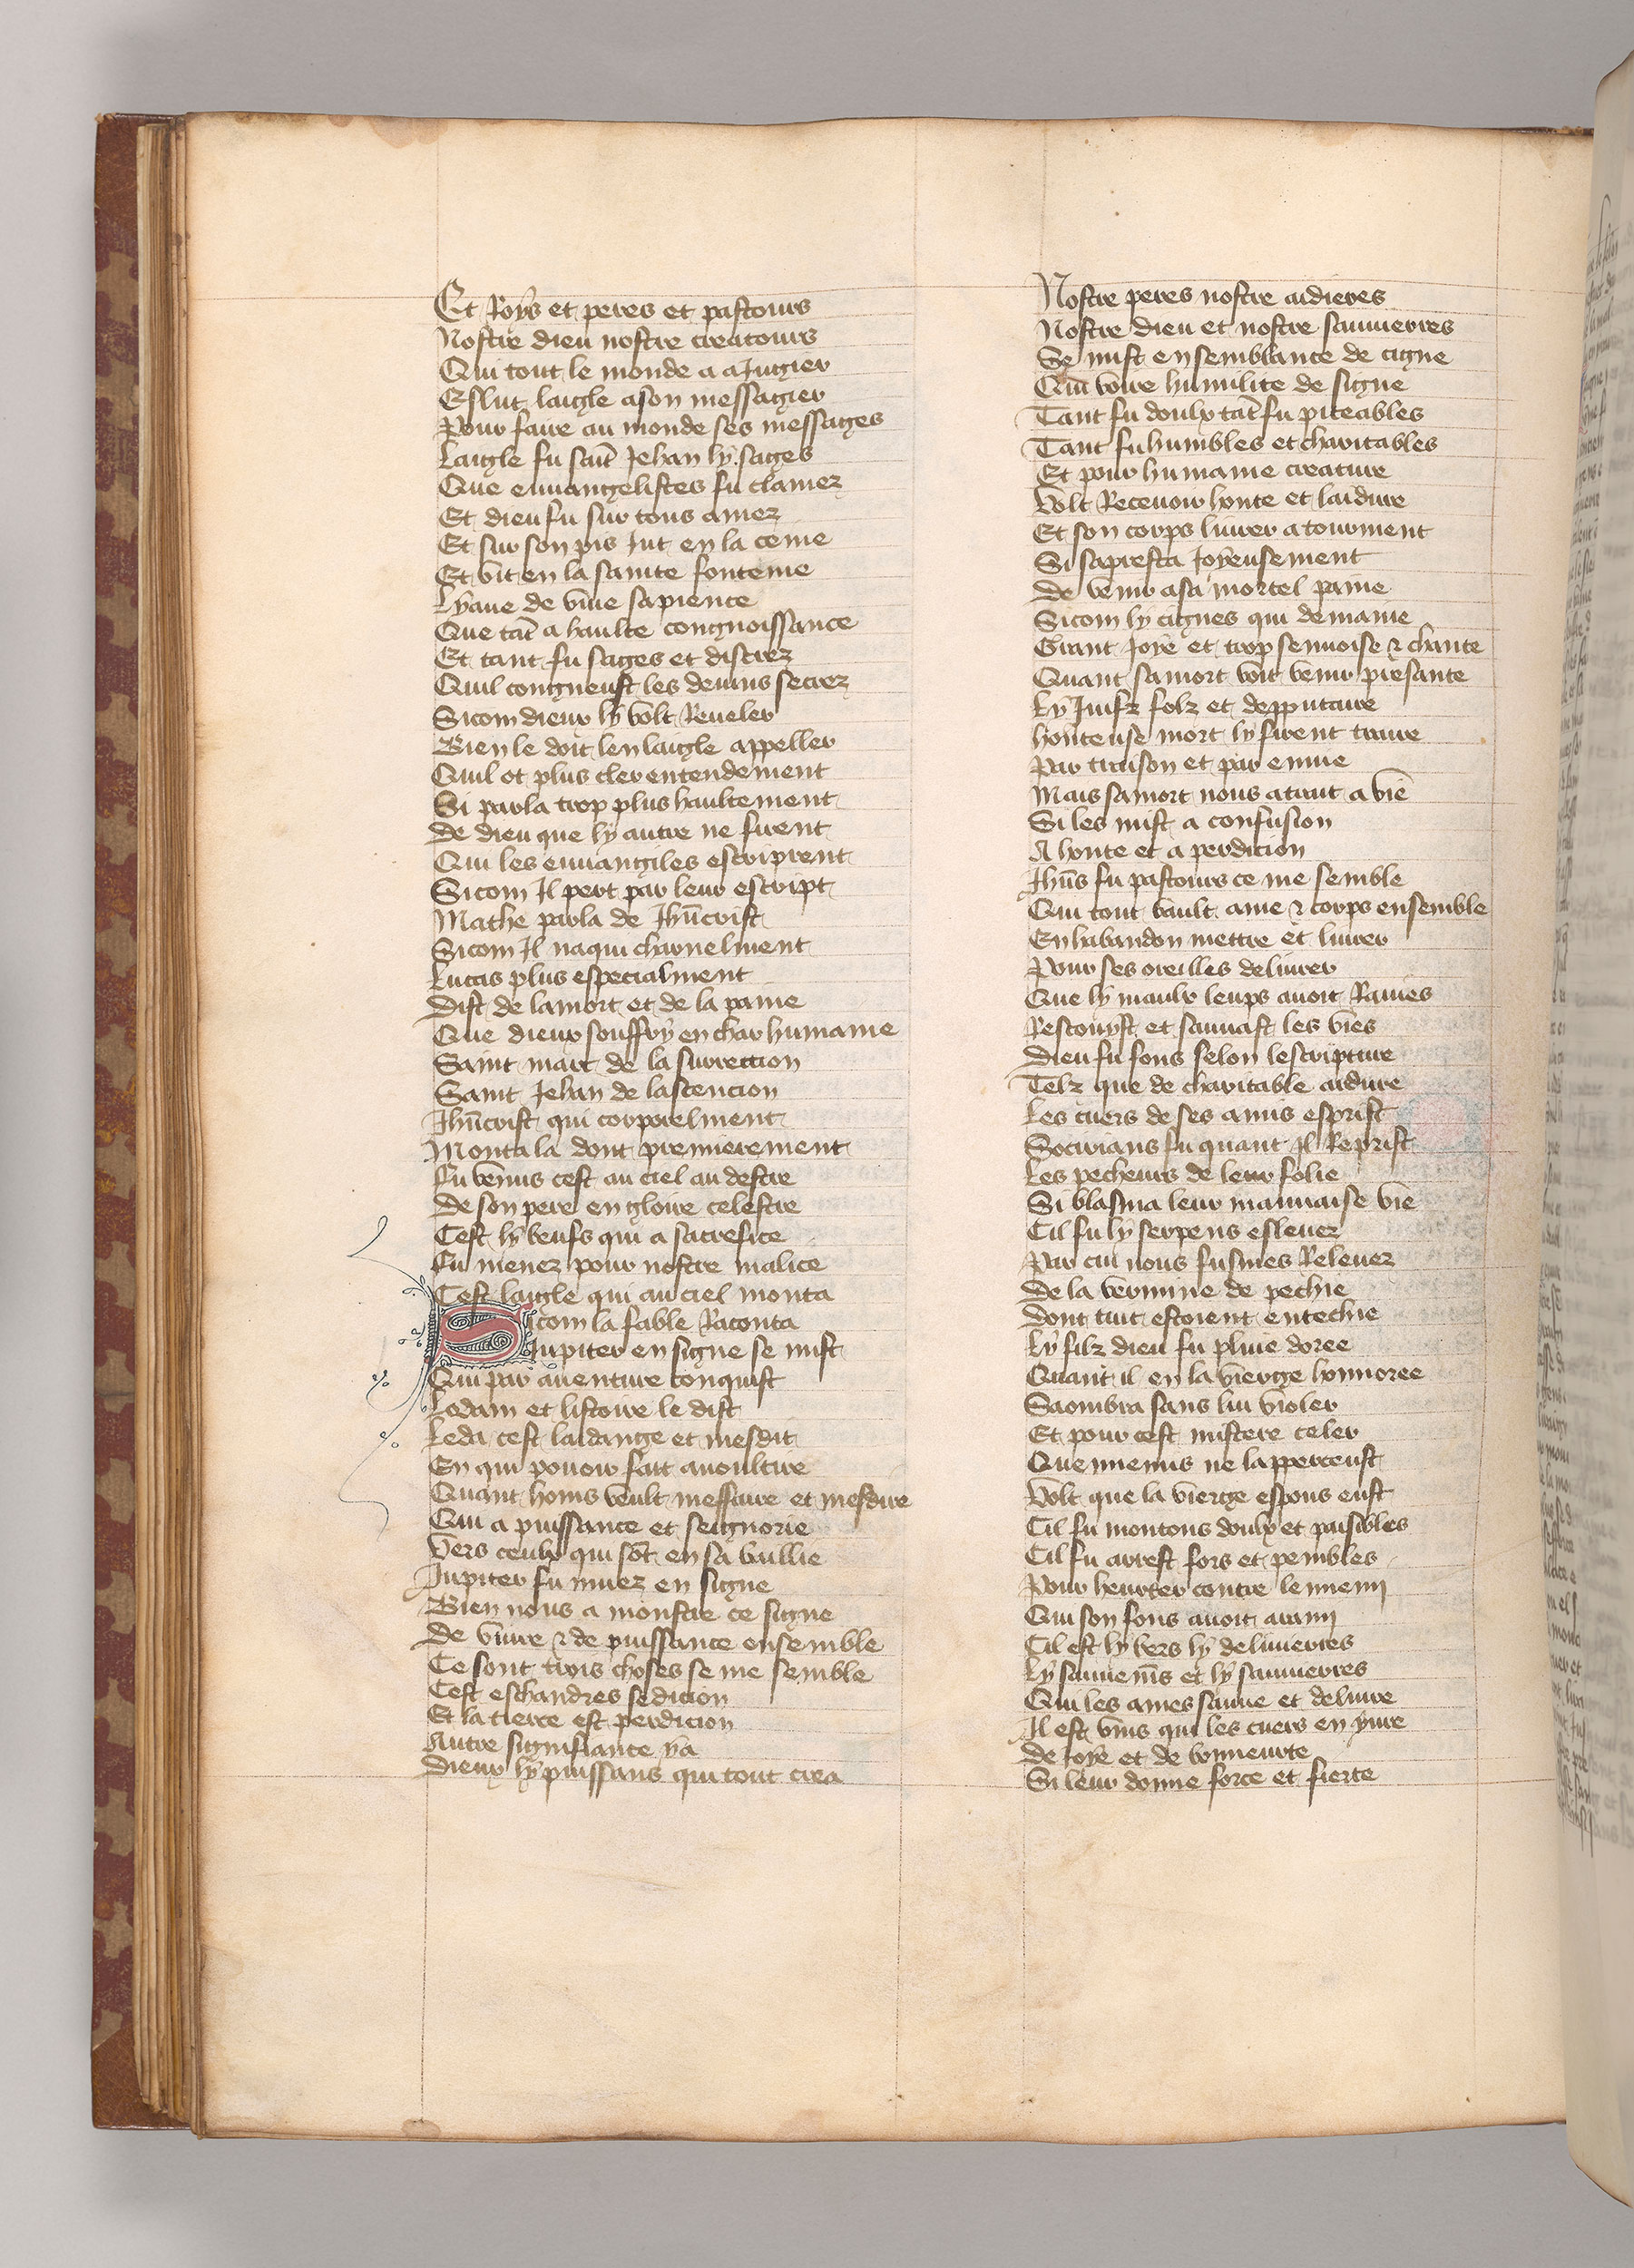 Et Roys et peres et pastours
Nostre dieu nostre creatours
Qui tout le monde a a Jugier
Eslut laigle a son messagier
Pour faire au monde ses messages
Laigle fu sait Jehan ly sages
Que euuangelistes fu clamez
Et dieu fu sur tous amez
Et sur son pis Jut en la ceine
Et vit en la sainte fonteine
Lyaue de viue sapience
Que tat a haulte congnoissance
Et tant fu sages et discrez
Quil congneust les deuins secrez
Sicom dieux ly volt Reueler
Bien le doit len laigle appeller
Quil ot plus cler entendement
Si parla trop plus haultement
de dieu que ly autre ne firent
Qui les euuangiles escriprent
Sicom Il pert par leur escript
Mathe parla de Jhucrist
Sicom Il naqui charnelment
Lucas plus especialment
Dist de la mort et de la paine
Que dieux souffry en char humaine
Saint marc de la surrection
Saint Jehan de lascencion
Jhucrist qui corporelment
Monta la dont premierement
Fu venus cest au ciel au destre
de son pere en gloire celestre
Cest ly beufs qui a sacrefice
Fu menez pour nostre malice
Cest laigle qui au ciel monta
Sicom la fable Raconta
Jupiter en signe se mist
Qui par auenture conquist
Ledam et listoire le dist
Leda cest laidange et mesdit
En qui pouoir fait auoultire
Quant homs veult meffaire et mesdire
Qui a puissance et seignorie
Vers ceulx qui sot en sa baillie
Jupiter fu muez en signe
Bien nous a monstre ce signe
de viure & de puissance ensemble
Ce sont trois choses se me semble
Cest eschandres sedicion
Et la tierce est perdicion
Autre signifiance ya
Dieux ly puissans qui tout crea
Nostre peres nostre aidieres
Nostre dieu et nostre sauuerres
Se mist en semblance de cigne
Qui voire humilite de signe
Tant fu doulx tat fu piteables
Tant fu humbles et charitables
Et pour humaine creature
Volt Receuoir honte et laidure
Et son corps liurer a tourment
Si sapresta Joyeusement
de venir a sa mortel paine
Sicom ly cignes qui demaine
Grant Joye et trop senuoise & chante
Quant sa mort voit venir presante
Ly Juifz folz et depputaire
honteuse mort ly firent traire
Par traison et par enuie
Mais sa mort nous atrait a vie
Si les mist a confusion
A honte et a perdicion
Jhus fu pastours ce me semble
Qui tout vault ame & corps ensemble
En habandon mettre et liurer
Pour ses oreilles deliurer
Que ly maulx leups auoit Rauies
Rescouyst et sauuast les vies
Dieu fu fous selon lescripture
Telz que de charitable aidure
Les cuers de ses amis esprist
Socirians fu quant Il Reprist
Les pecheurs de leur folie
Si blasma leur mauuaise vie
Cil fu ly serpens esleuez
Par cui nous fusmes Releuez
de la vermine de pechie
dont tuit estoient entechie
Ly filz dieu fu pluie doree
Quant il en la vierge honnoree
Saombra sans lui violer
Et pour cest mistere celer
Quennemis ne lapperceust
Volt que la vierge espous eust
Cil fu moutons doulx et paisibles
Cil fu arrest fors et penibles
Pour heurter contre lennemy
Qui son fons auoit aramy
Cil est ly vers ly deliuerres
Ly sauuems et ly sauuerres
Qui les ames sauue et deliure
Il est vins qui les cuers en yure
de Joye et de bonneurte
Si leur donne force et fierte